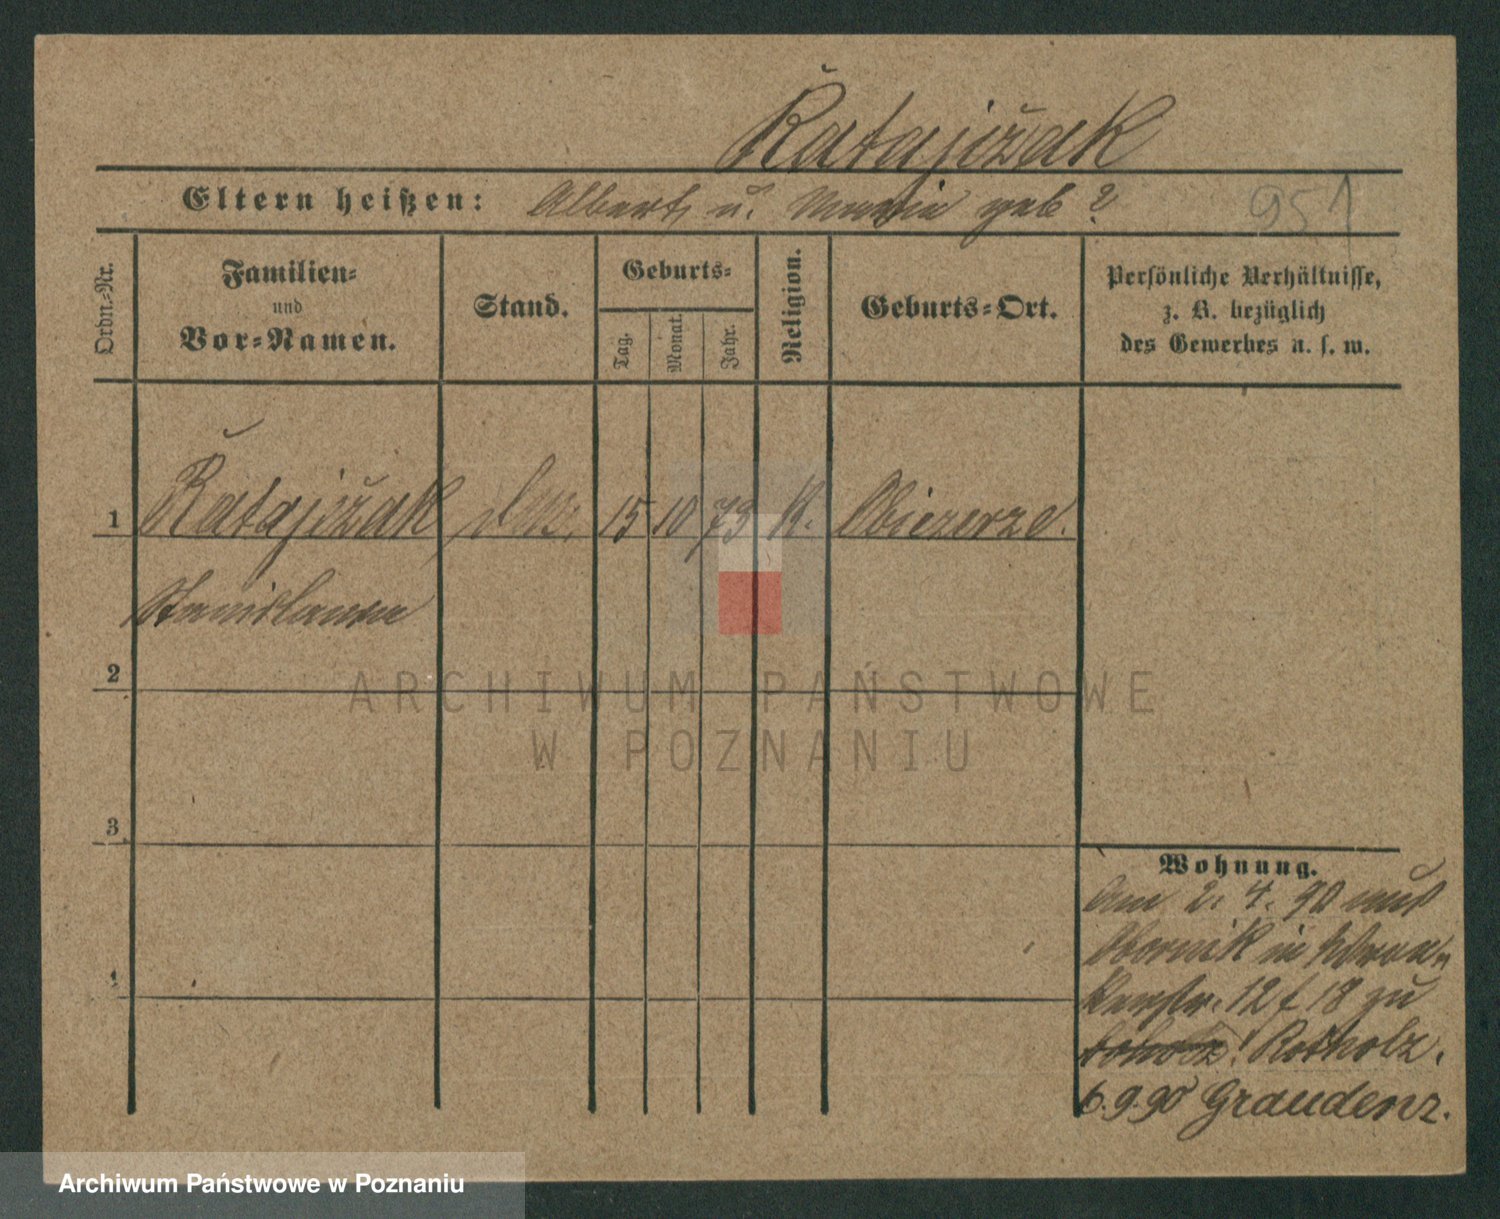 Ratajczak
Eltern heißen: Albert u. Marie geb ?
951
Ordn.-Nr.
Familien-
und
Vor-Namen.
Stand.
Geburts-
Tag.
Monat.
Jahr.
Religion.
Geburts-Ort.
Persönliche Verhältnisse,
z. B. bezüglich
des Gewerbes u. s. w.
1 Ratajczak 15 10 73 K. Obiezerze.
Stanislawa
2
3
4
Wohnung.
Am 2. 4. 90 aus
Obornik in Wron-
kerstr. 12 f 18 zu
Rotholz.
6.9.90 Graudenz.
ARCHIWUM PAŃSTWOWE
W POZNANIU
Archiwum Państwowe w Poznaniu